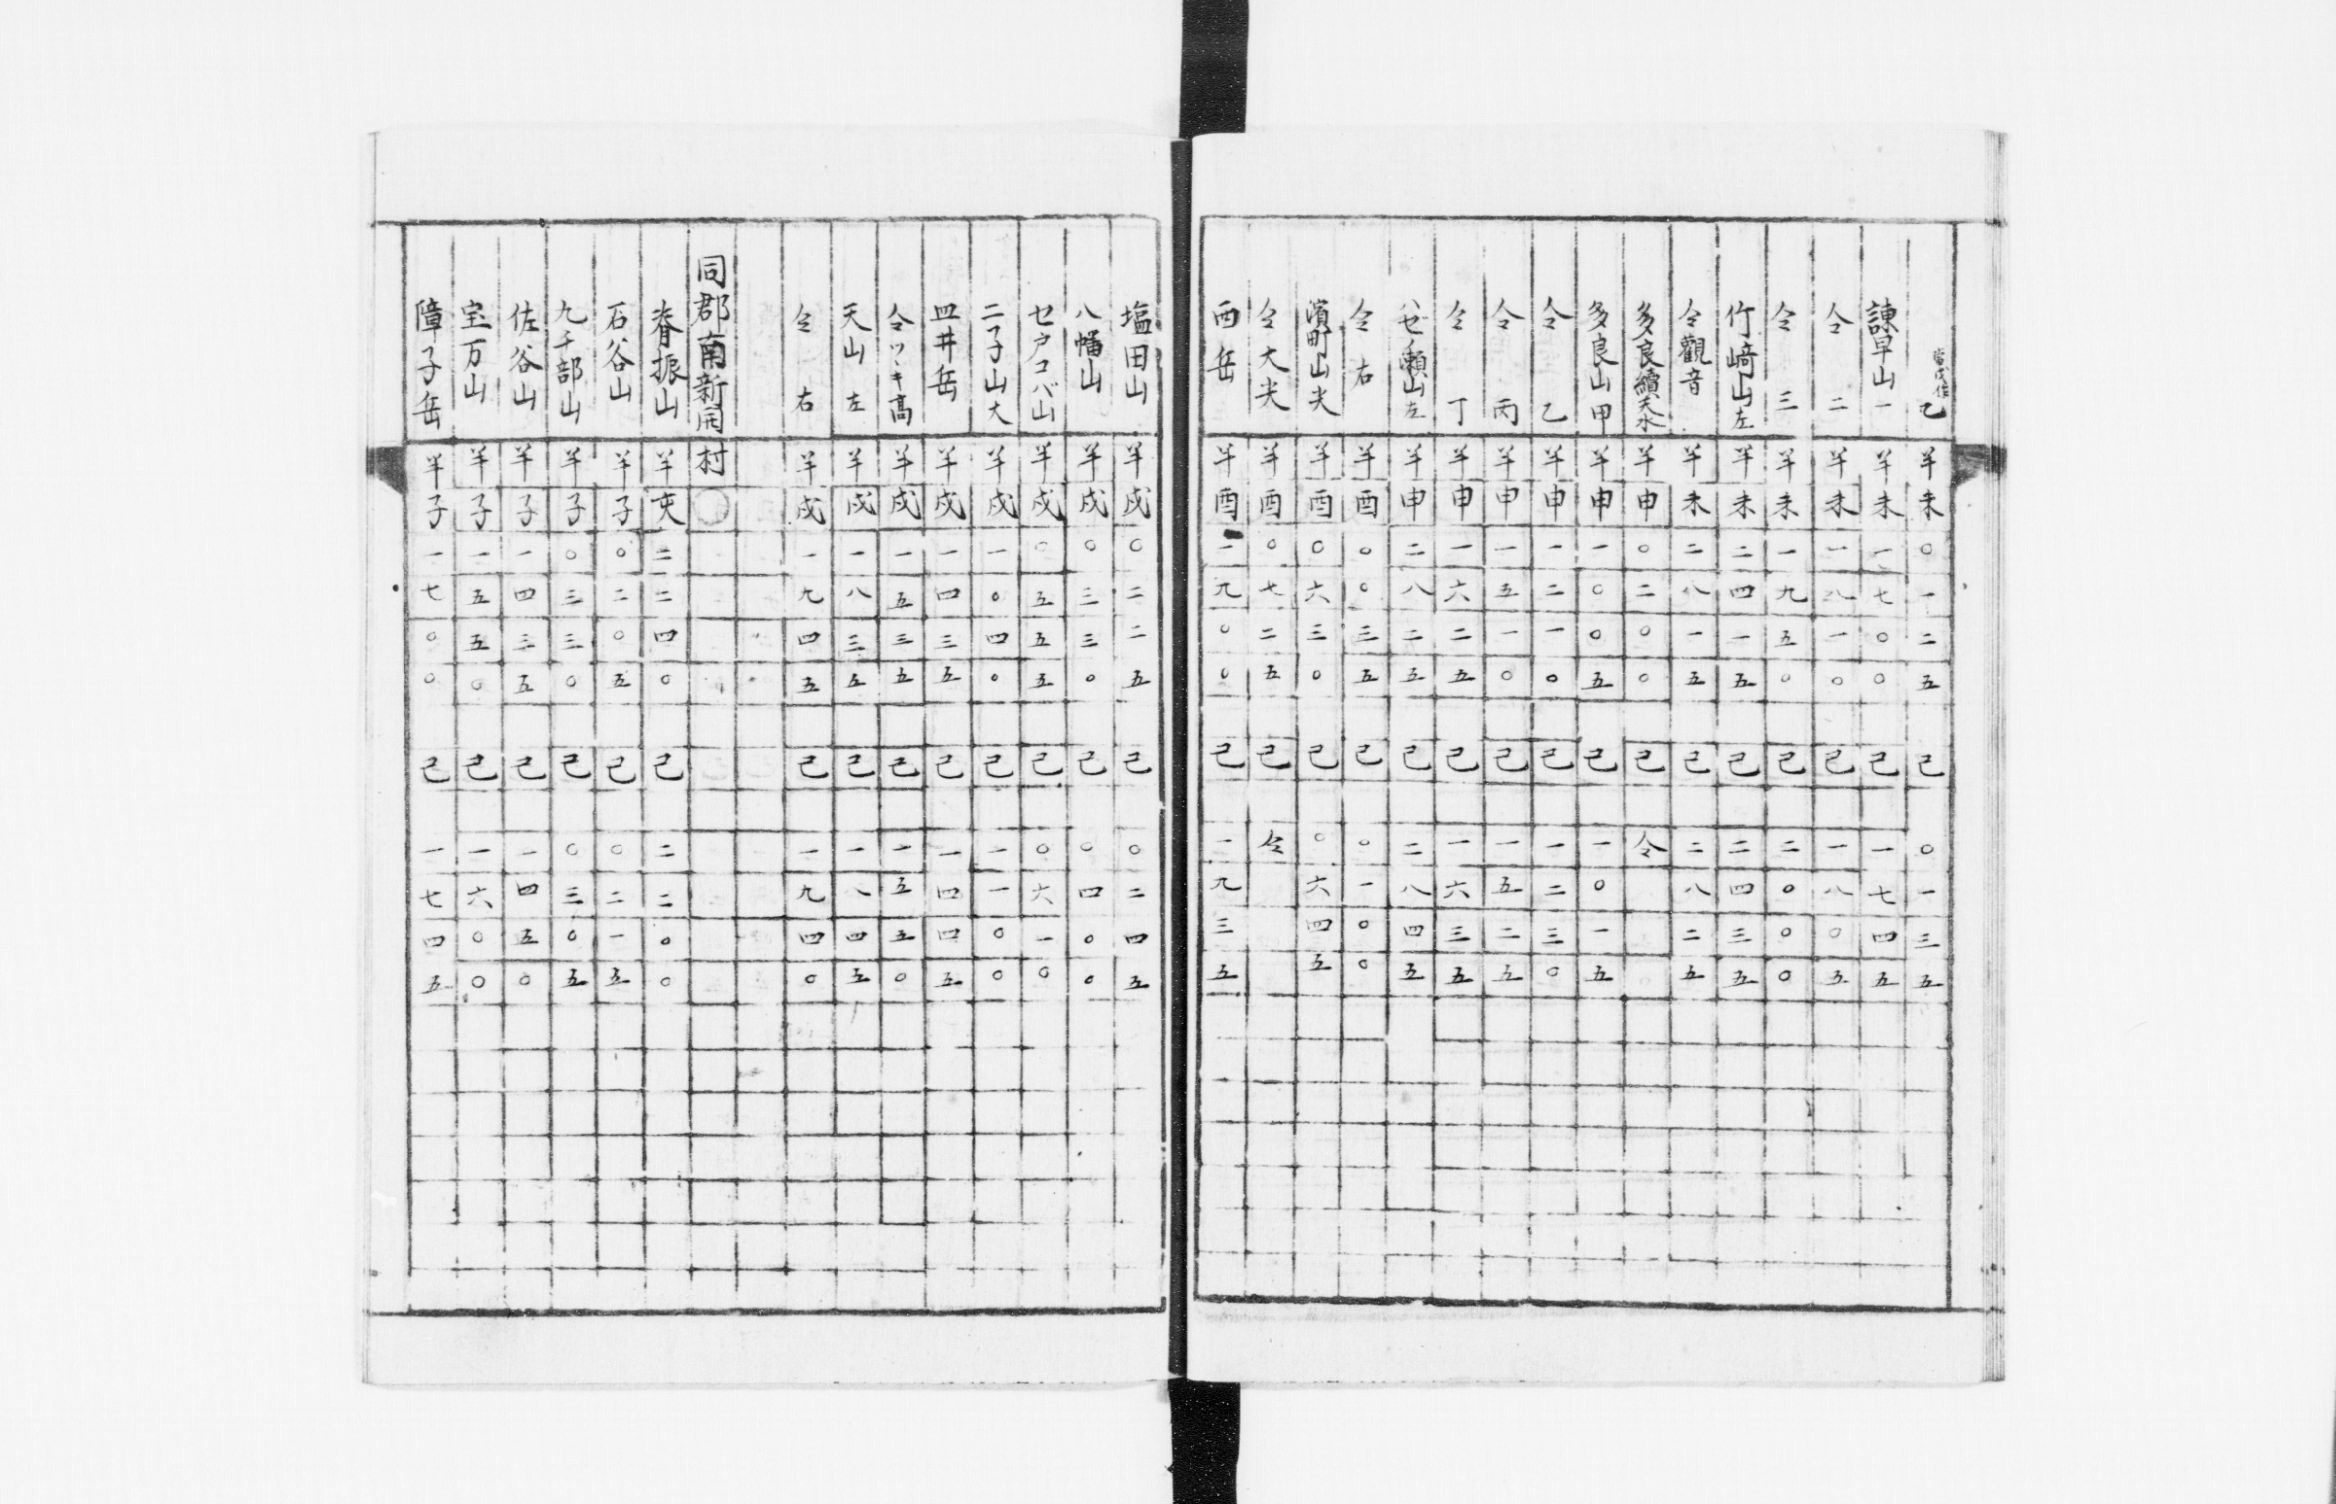 乙 羊未〇一二五 己 〇一三五
諫早山一 羊未一七〇〇 己 一七四五
仝二 羊未一八一〇 己 一八〇五
仝三 羊未一九五〇 己 二〇〇〇
竹﨑山左 羊未二四一五 己 二四三五
仝觀音 羊未二八一五 己 二八二五
多良續天水 羊申〇二〇〇 己 仝
多良山甲 羊申一〇〇五 己 一〇一五
仝乙 羊申一二一〇 己 一二三〇
仝丙 羊申一五一〇 己 一五二五
仝丁 羊申一六二五 己 一六三五
八ゼノ瀬山左 羊申二八二五 己 二八四五
仝右 羊酉〇〇三五 己 〇一〇〇
濱町山尖 羊酉〇六三〇 己 〇六四五
仝大尖 羊酉〇七二五 己 仝
西岳 羊酉一九〇〇 己 一九三五
塩田山 羊戌〇二二五 己 〇二四五
八幡山 羊戌〇三三〇 己 〇四〇〇
セ戸コバ山 羊戌〇五五五 己 〇六一〇
二子山大 羊戌一〇四〇 己 一一〇〇
皿井岳 羊戌一四三五 己 一四四五
仝ツヽキ高 羊戌一五三五 己 一五五〇
天山左 羊戌一八三五 己 一八四五
仝右 羊戌一九四五 己 一九四〇
同郡南新開村〇
脊振山 羊亥二二四〇 己 二二〇〇
石谷山 羊子〇二〇五 己 〇二一五
九千部山 羊子〇三三〇 己 〇三〇五
佐谷山 羊子一四三五 己 一四五〇
宝万山 羊子一五五〇 己 一六〇〇
障子岳 羊子一七〇〇 己 一七四五